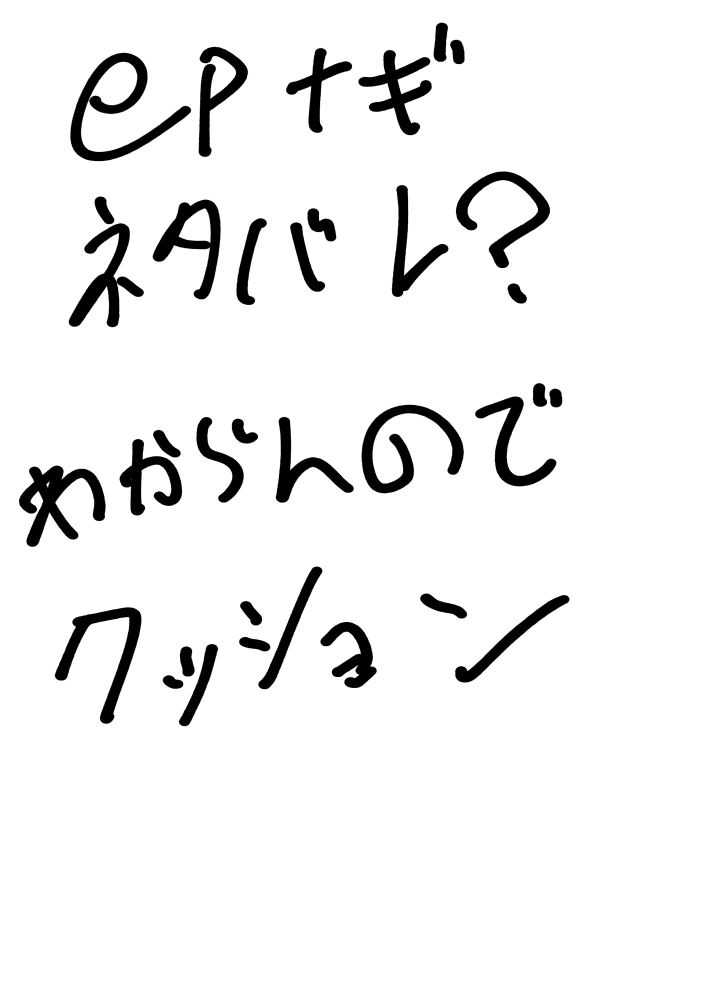 epナギ
ネタバレ?
わからんので
クッション